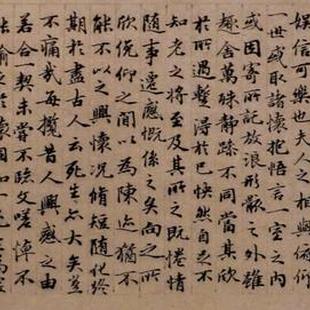 娛信可樂也夫人之相與俯仰
一世或取諸懷抱悟言一室之內
或因寄所託放浪形骸之外雖
趣舍萬殊靜躁不同當其欣
於所遇蹔得於己快然自足不
知老之將至及其所之既惓情
隨事遷感慨係之矣向之所
欣俛仰之間以為陳迹猶不
能不以之興懷況脩短隨化終
期於盡古人云死生亦大矣豈
不痛哉每攬昔人興感之由
若合一契未嘗不臨文嗟悼不
喻之於懷固知一死